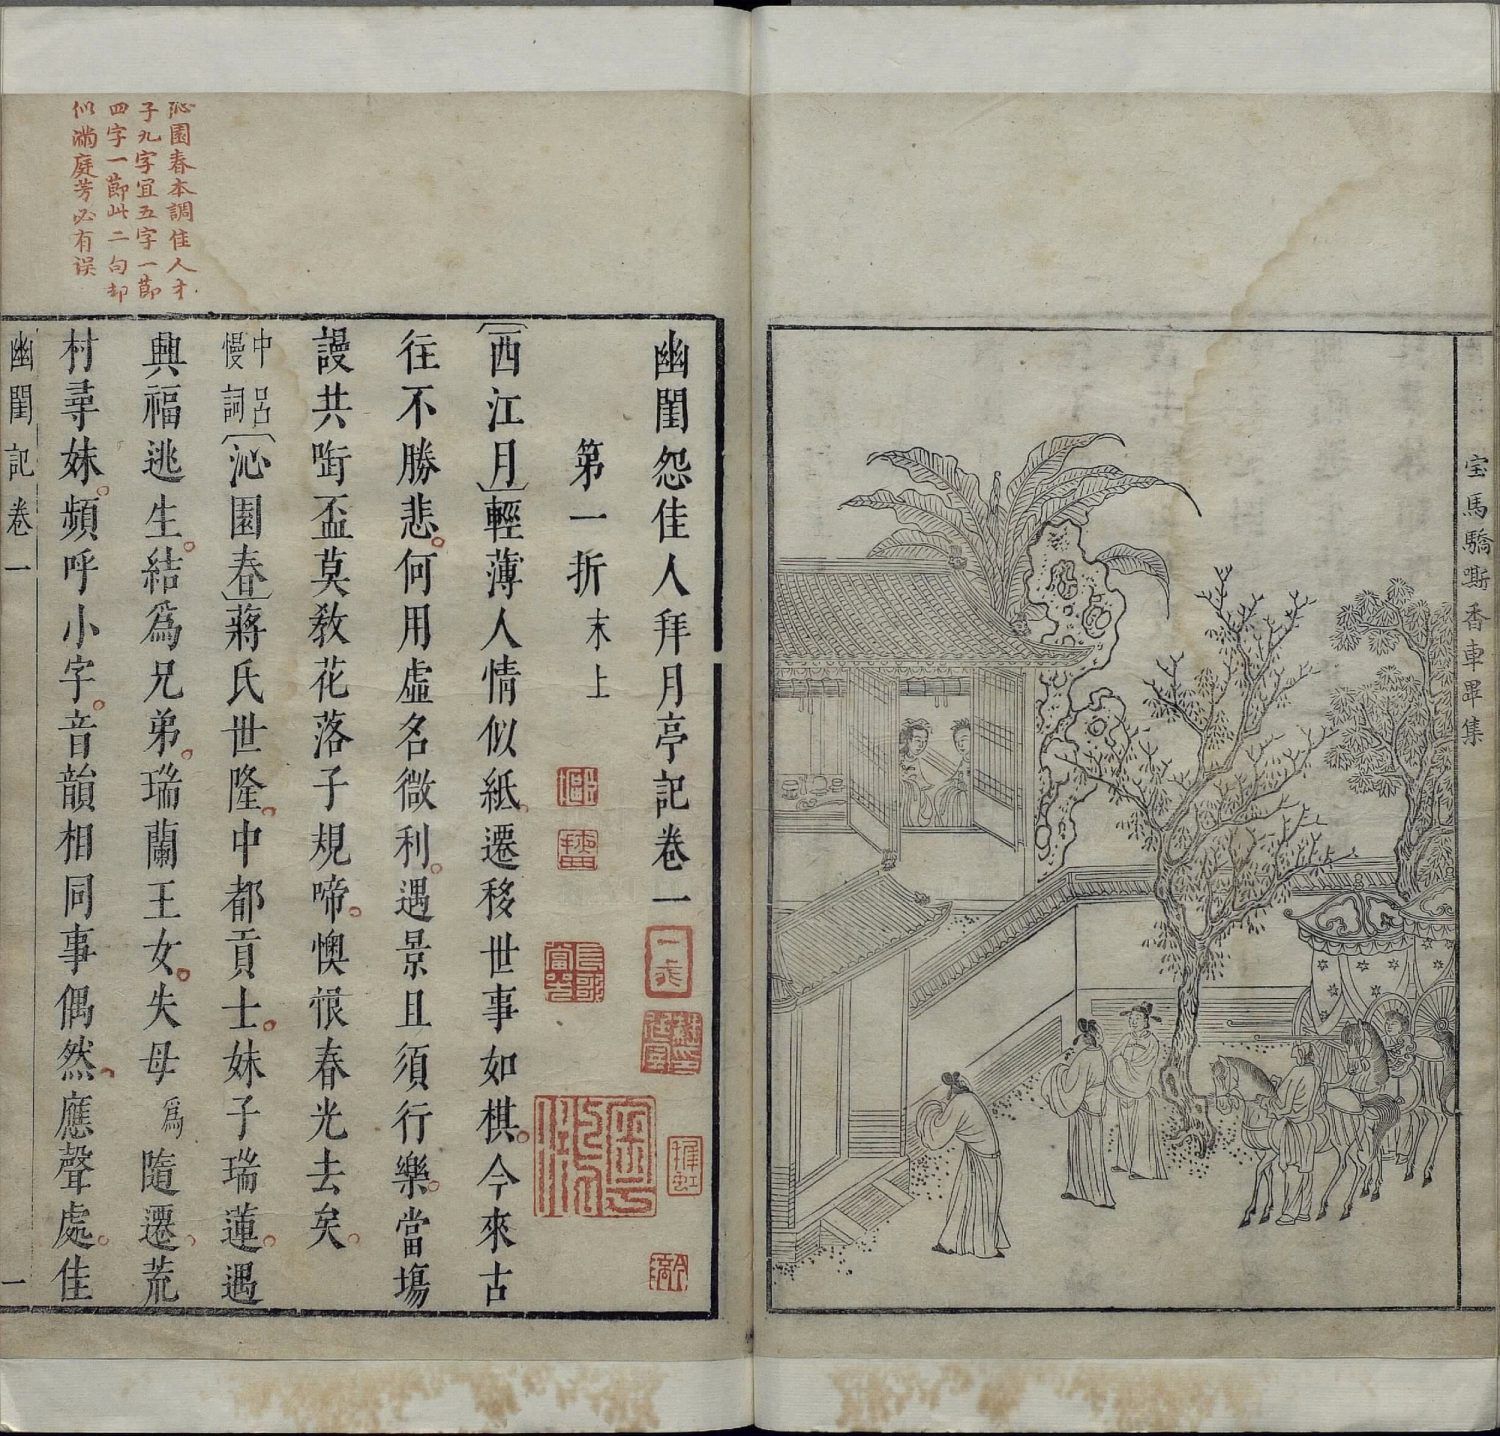 宝馬驕嘶香車畢集
幽閨怨佳人拜月亭記卷一
第一折 末上
〔西江月〕輕薄人情似紙遷移世事如棋今來古
往不勝悲何用虛名微利遇景且須行樂當塲
謾共啣盃莫教花落子規啼懊恨春光去矣
中呂
慢詞〔沁園春〕蔣氏世隆中都貢士妹子瑞蓮遇
興福逃生結爲兄弟瑞蘭王女失母爲隨遷荒
村尋妹頻呼小字音韻相同事偶然應聲處佳
幽閨記卷一 一
沁園春本調佳人才
子九字宜五字一節
四字一節此二句却
似滿庭芳必有误